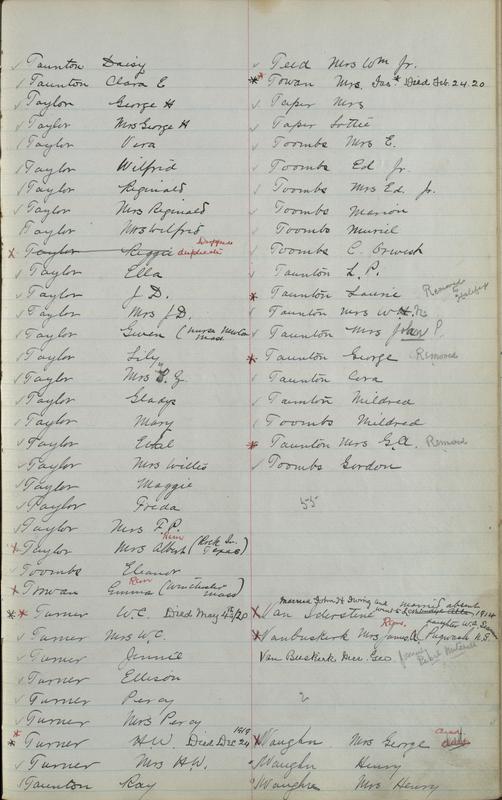 Taunton Daisy
Taunton Clara E
Taylor George H
Taylor Mrs George H
Taylor Vera
Taylor Wilfrid
Taylor Riginald
Taylor Mrs Riginald
Taylor Mrs Wilfrid
Taylor Reggie duplicate
Taylor Ella
Taylor J. D.
Taylor Mrs J D.
Taylor Gwen (nurse Mass
Taylor Lily
Taylor Mrs
Taylor Gladys
Taylor Mary
Taylor
Taylor Mrs Willis
Taylor Maggie
Taylor Freda
Taylor Mrs F. P.
Taylor Mrs Albert Rem (Texas)
Toombs Eleanor
Towan Emma Rem (Winchester Mass)
Turner W. C. Died May 4th/20
Turner Mrs W. C.
Turner Jennie
Turner Ellison
Turner Percy
Turner Mrs Percy
Turner H.W. Died Dec 24 1919
Turner Mrs H.W.
Taunton Ray
Teed Mrs Wm Jr.
Towan Mrs. Jas. Died Feb. 24.20
Taper Mrs
Taper Lottie
Toombs Mrs E.
Toombs Ed Jr.
Toombs Mrs Ed. Jr.
Toombs Marion
Toombs Muriel
Toombs C.
Taunton L. P.
Taunton Laurie Removed to Halifax
Taunton Mrs W
Taunton Mrs John P.
Taunton George Removed
Taunton Cora
Taunton Mildred
Toombs Mildred
Taunton Mrs G.A. Removed
Toombs Gordon
55
Van married 1914
Vanbuskirk Mrs James Pugwash N.S.
Van Buskirk Mrs. Geo.
2
Vaughn Mrs George dead
Vaughn Henry
Vaughn Mrs Henry